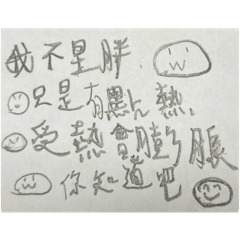 我不是胖
只是有點ㄦ熱,
受熱會膨脹
你知道吧